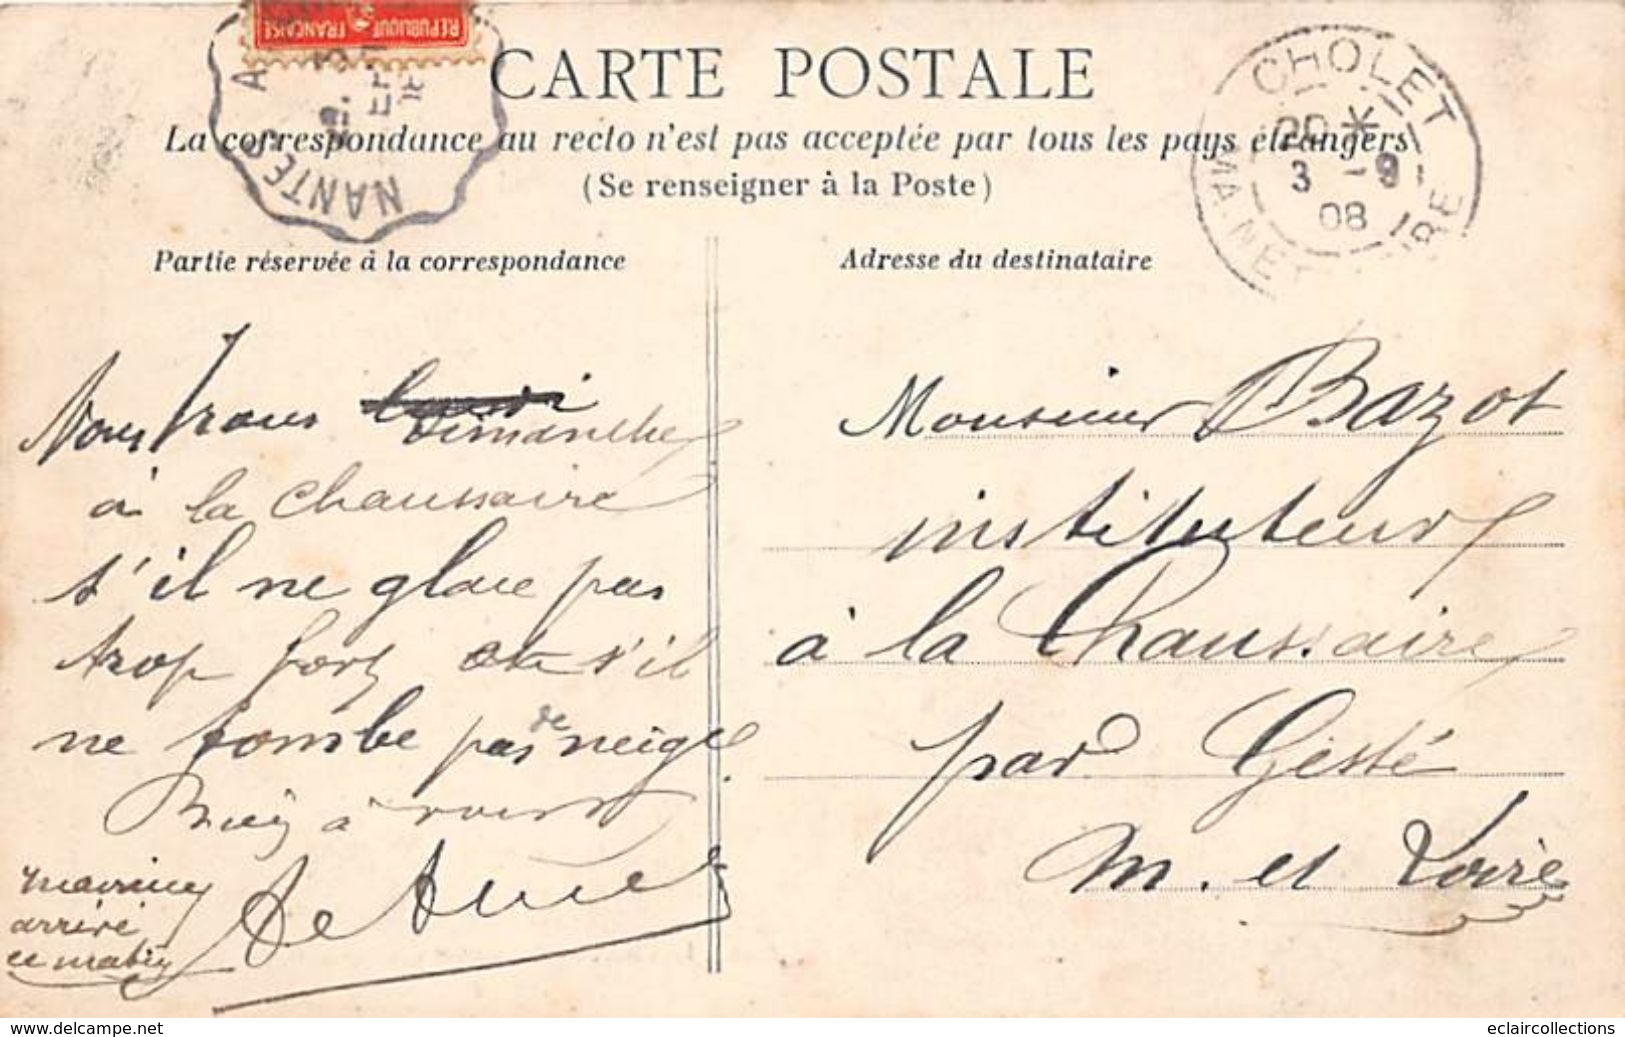 REPUBLIQUE FRANÇAISE
NANTES A
CARTE POSTALE
CHOLET
20 *
3 - 9
08
MAINE ET IRE
La correspondance au recto n'est pas acceptée par tous les pays étrangers
(Se renseigner à la Poste)
Partie réservée à la correspondance
Nous irons lundi dimanche
à la Chaussaire
s'il ne glace pas
trop fort et s'il
ne tombe pas de neige.
Bien à vous
arrivé
ce matin
Adresse du destinataire
Monsieur Bazot
instituteur
à la Chaussaire
par Gesté
M. et Loire
www.delcampe.net
eclaircollections